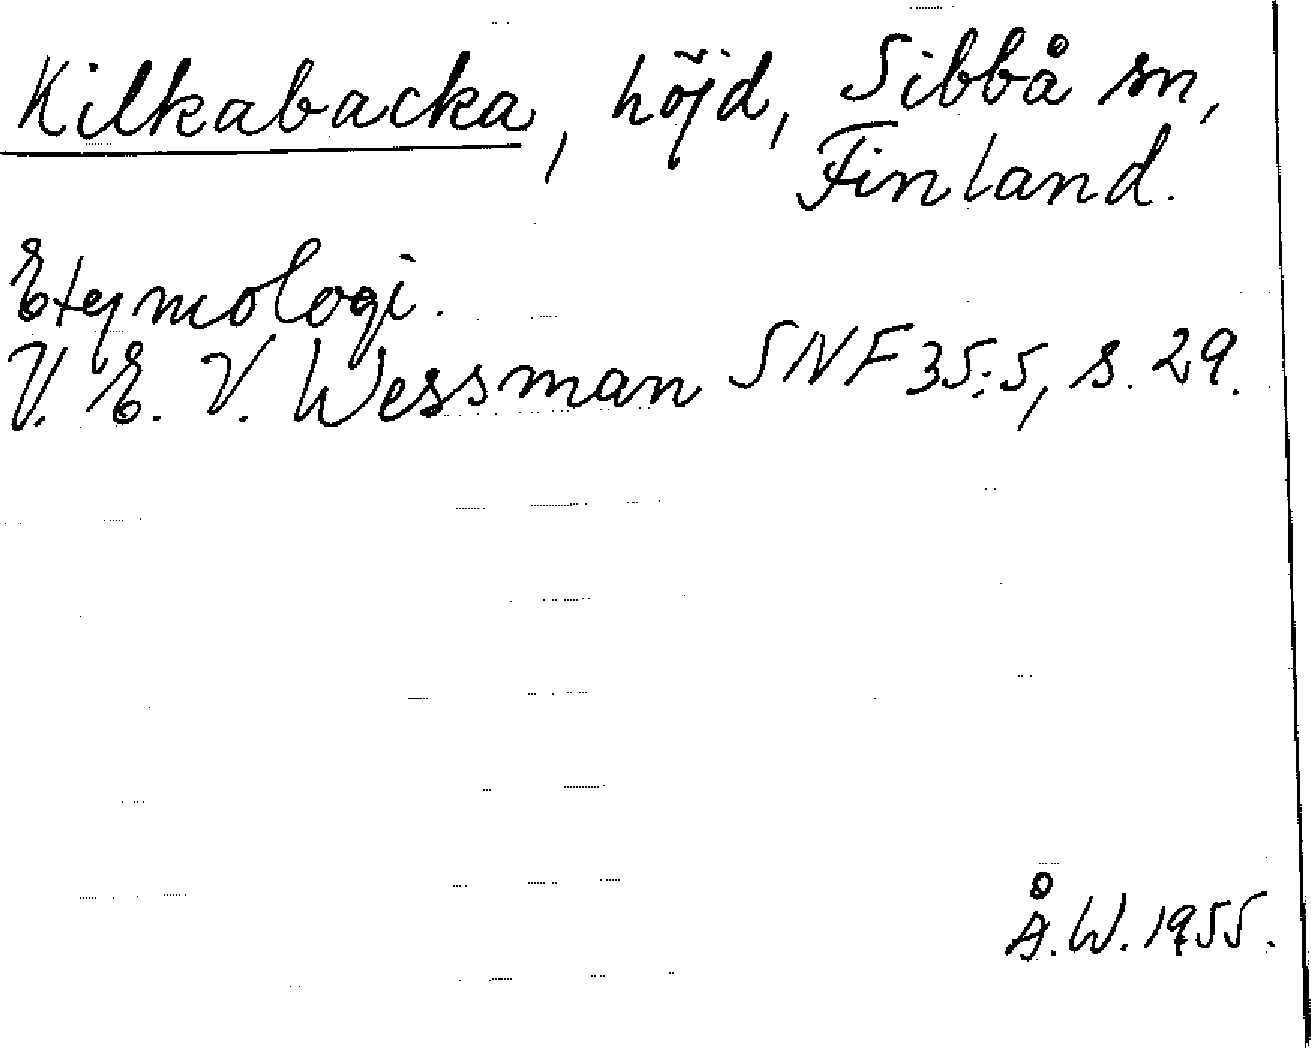 Kilkabacka, höjd, Sibbå sn,
Finland.
Etymologi.
V. E. V. Wessman SNF 35:5, s. 29.
Å. W. 1955.